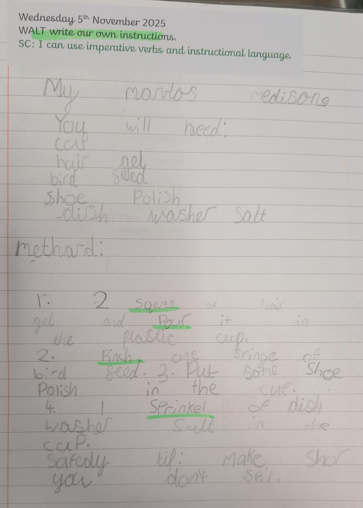 Wednesday 5th November 2025
WALT write our own instructions.
SC: I can use imperative verbs and instructional language.
My marvlos medisong
You will need:
cup
hair gel
bird seed
Shoe Polish
dish washer Salt
methard:
1. 2 Sqens of hair
gel and Por it in
the plastic cup.
2. Pinch one of
bird seed. 3. Put some Shoe
Polish in the cup.
4. 1 Sprinkel of dish
washer Salt in the
cup.
Safedy tip: make Shor
you don't